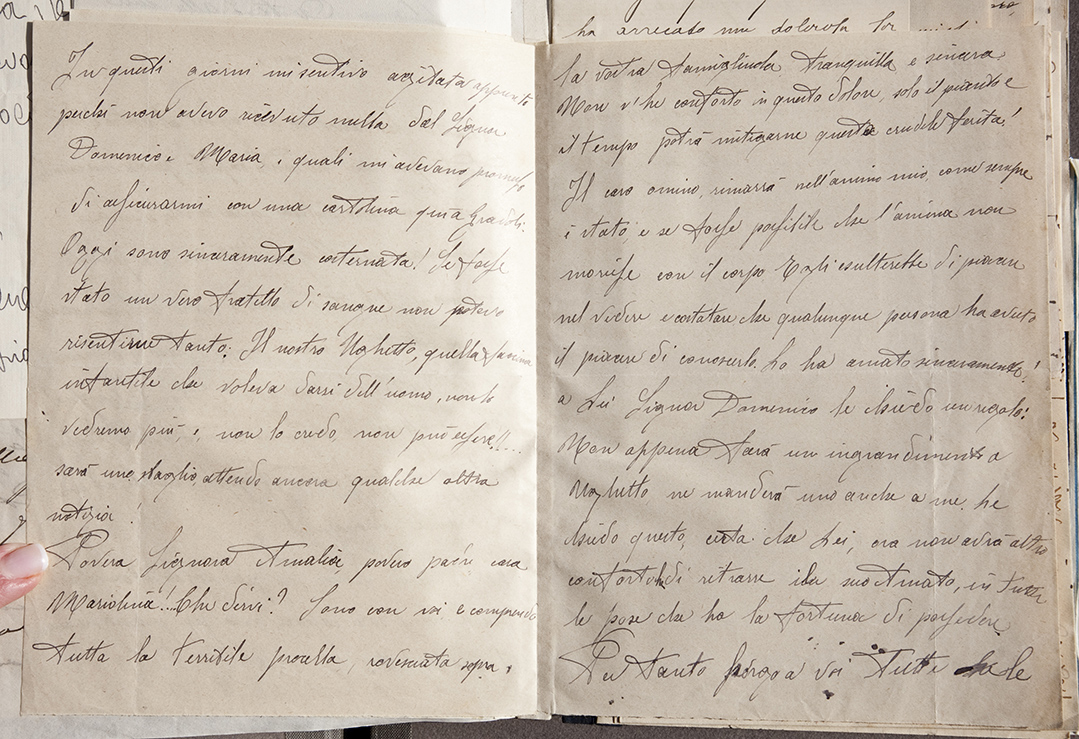 In questi giorni mi sentivo agitata appunto
perché non avevo ricevuto nulla dal Signor
Domenico e Maria, i quali mi avevano promesso
di assicurarmi con una cartolina
Oggi sono sinceramente costernata! Se fosse
stato un vero fratello di sangue non potevo
risentirne tanto. Il nostro Ughetto, quella
infantile che voleva darsi dell'uomo, non lo
vedremo più, e, non lo credo, non può essere!!...
sarà uno sbaglio, attendo ancora qualche altra
notizia!
Povera Signora Amalia, povero cara
Mariolina!! Che dirvi? Sono con voi e comprendo
tutta la terribile procella, rovesciata sopra
ha arrecato una dolorosa
la vostra famigliuola tranquilla e sincera.
Non v'ha conforto in questo dolore, solo il pianto e
il tempo potrà mitigarne questa crudele ferita!
Il caro omino, rimarrà nell'animo mio, come sempre
è stato, e se fosse possibile che l'anima non
morisse con il corpo Egli esulterebbe di piacere
nel vedere e costatare che qualunque persona ha avuto
il piacere di conoscerlo Lo ha amato sinceramente!
a Lei Signor Domenico le chiedo un regalo:
Non appena farà un ingrandimento a
Ughetto ne manderà uno anche a me. Le
chiedo questo, certa che Lei, ora non avrà altro
conforto di ritrarre il suo Amato, in tutte
le pose che ha la fortuna di possedere
Per tanto porgo a voi tutti che le